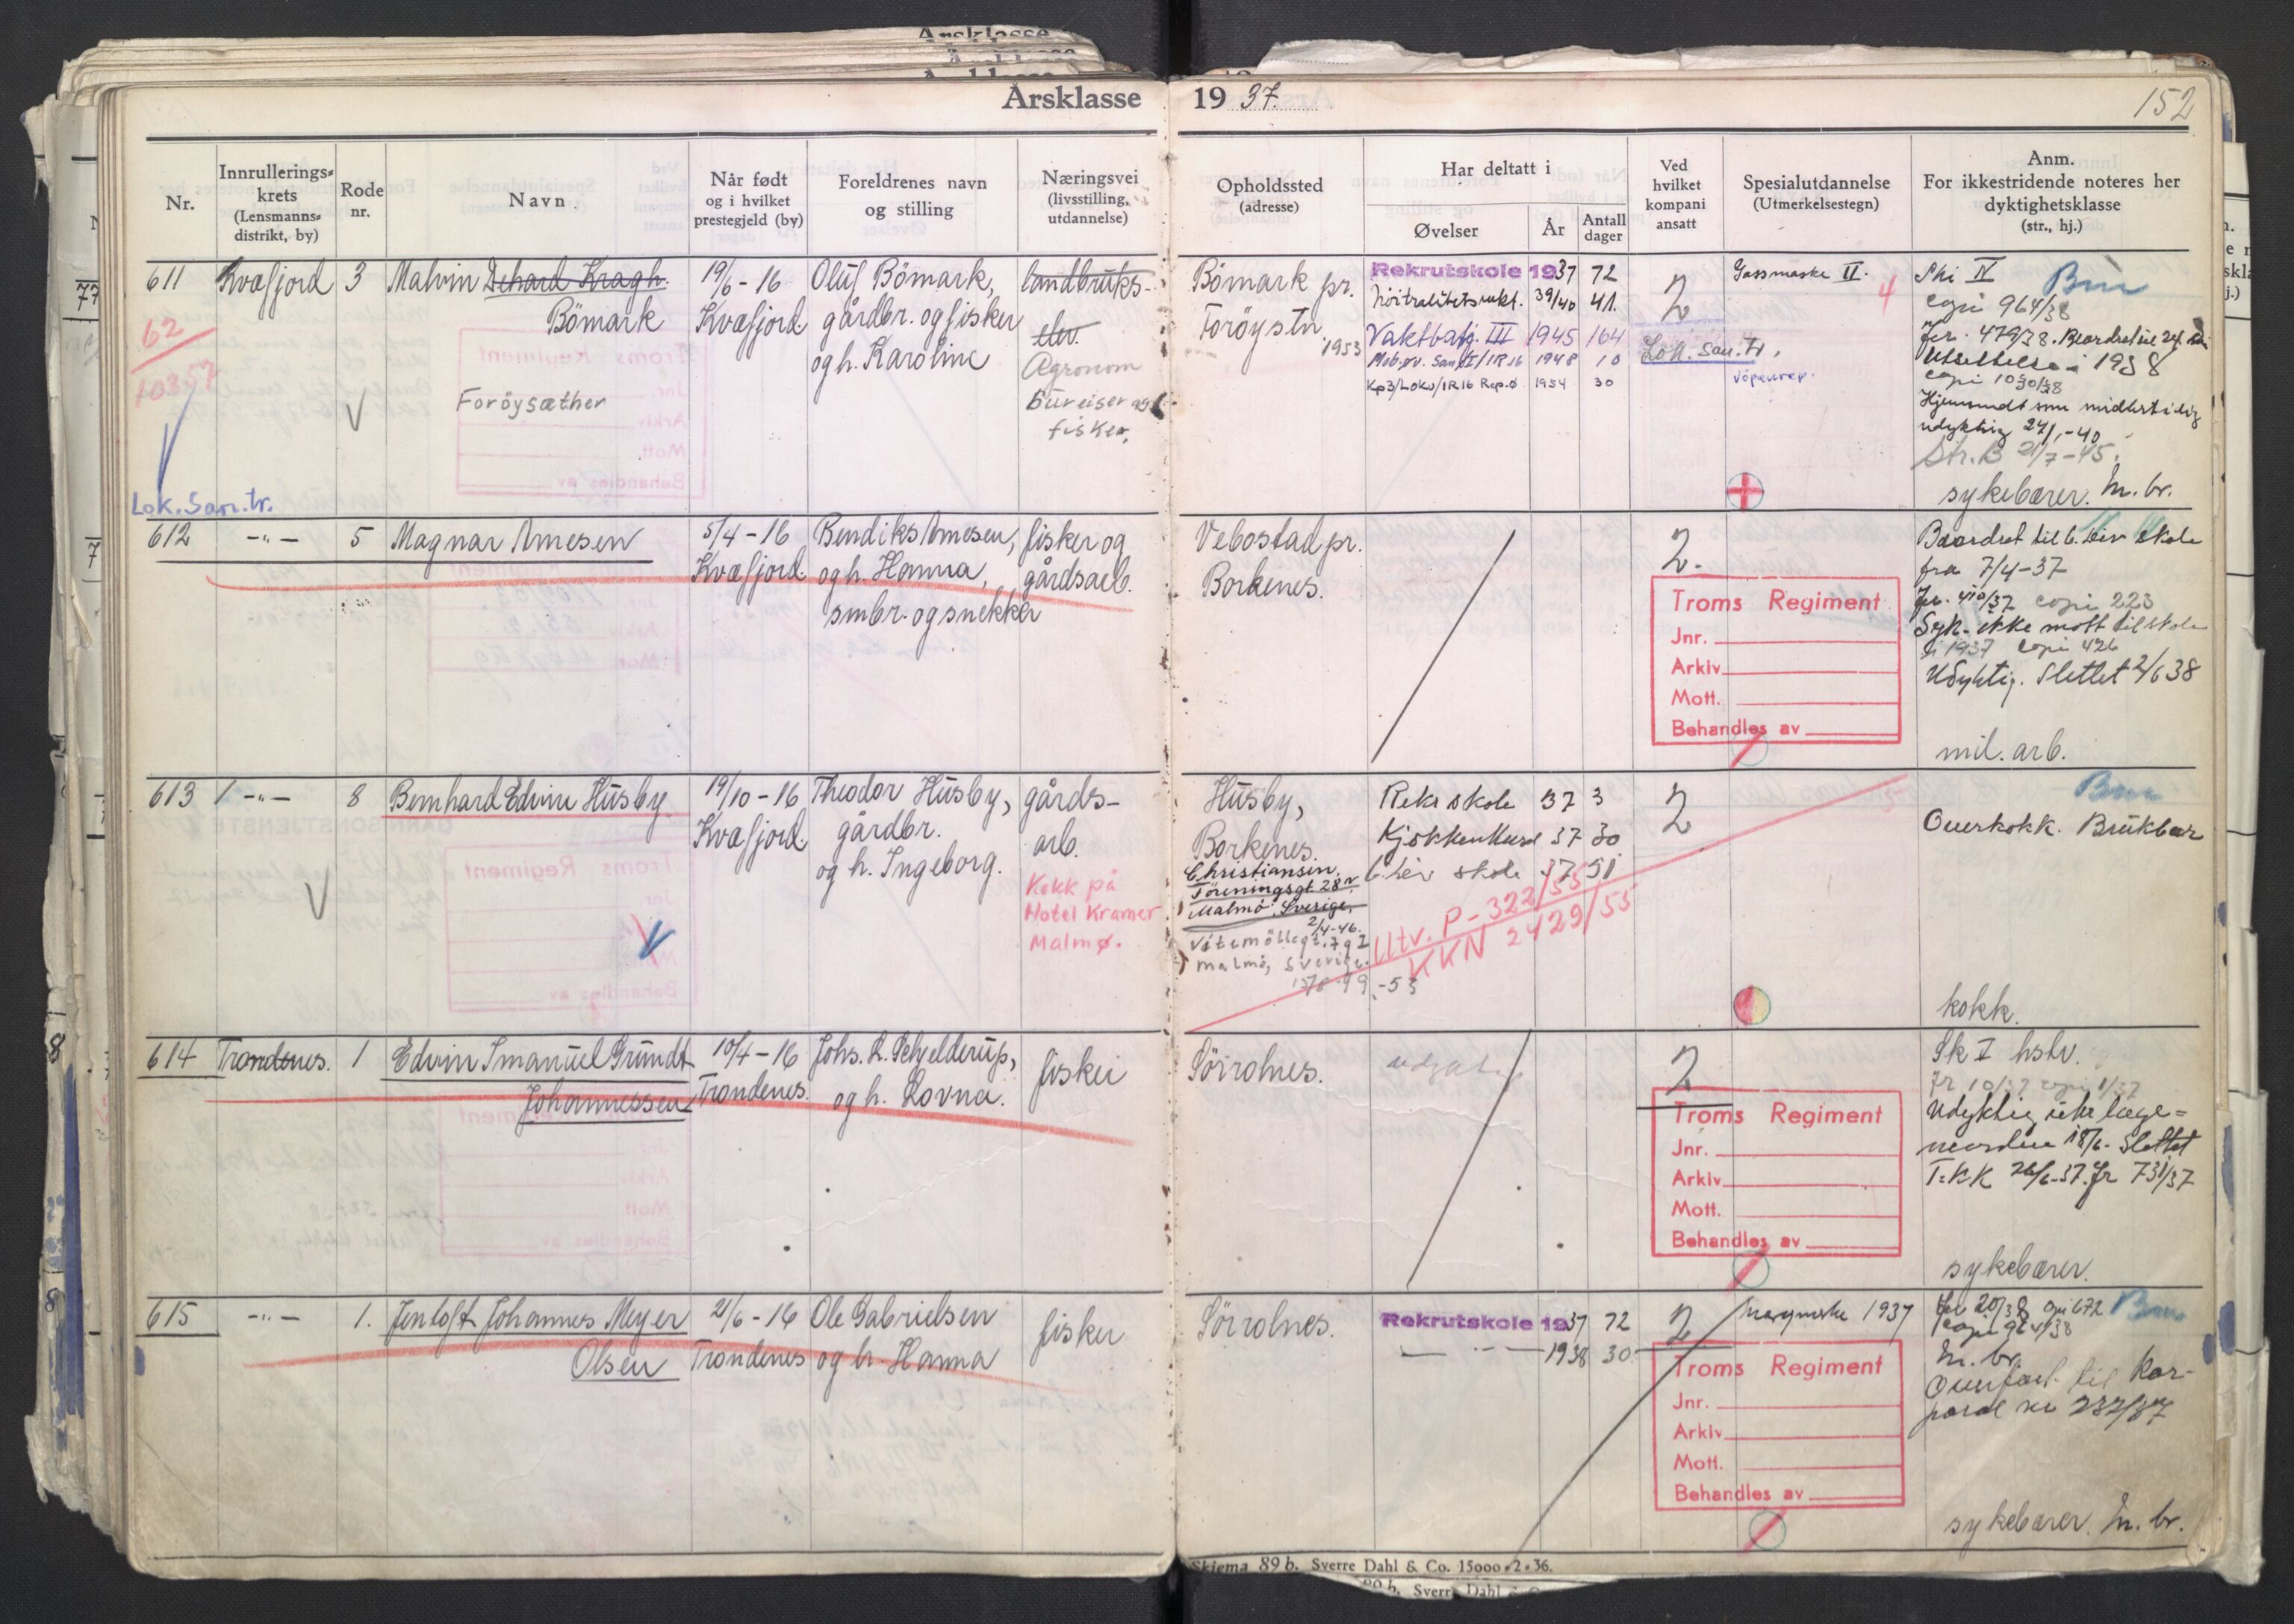 Årsklasse 1937.
152
Nr.
Innrullerings-
krets
(Lensmanns-
distrikt, by)
Rode
nr.
Navn
Når født
og i hvilket
prestegjeld (by)
Foreldrenes navn
og stilling
Næringsvei
(livsstilling,
utdannelse)
Opholdssted
(adresse)
Har deltatt i
Øvelser
År
Antall
dager
Ved
hvilket
kompani
ansatt
Spesialutdannelse
(Utmerkelsestegn)
Anm.
For ikkestridende noteres her
dyktighetsklasse
(str., hj.)
611
62
10357
Lok. San. tr.
Kvæfjord
3
Malvin Dehard Kragh
Bömark
Foröysæther
19/6-16
Kvæfjord
Oluf Bömark,
gårdbr. og fisker
og h. Karoline
landbruks-
elev.
Agronom
Bureiser og
fisker.
Bömark pr.
Foröystn
1953
Rekrutskole 1937 72
Nöitralitetsvakt. 39/40 41.
Vaktbatj. III 1945 164
Mob.øv. San/I/IR16 1948 10
Kp3/Loko/IR16 Rep.ø 1954 30
2
Lok. San. Tr.
Gassmaske II.
4
våpenrep.
Ski IV
copi 964/38
Jr. 479/38. Beordret til
Utsettelse i 1938
copi 1030/38
Hjemsendt som midlertidig
udyktig 24/1-40
Str. B 21/7-45.
sykebærer. M. br.
612
-"-
5
Magnar Arnesen
5/4-16
Kvæfjord
Bendiks Arnesen,
og h. Hanna,
smbr. og snekker
fisker og
gårdsarb.
Vebostad pr.
Borkenes.
2.
Troms Regiment
Jnr.
Arkiv
Mott.
Behandles av
Beordret til 6. Div skole
fra 7/4-37
Jr. 410/37 copi 223
Syk - ikke møtt til skole
i 1937 copi 426
Udyktig. Slettet 2/6 38
mil. arb.
613
-"-
8
Bernhard Edvin Húsby
19/10-16
Kvæfjord
Theodor Húsby,
gårdbr.
og h. Ingeborg.
gårds-
arb.
Kokk på
Hotel Kramer
Malmø.
Húsby,
Borkenes.
Christiansen,
Föreningsgt. 28
Malmö, Sverige,
2/4-46.
Malmö, Sverige.
Rekr skole 37 3
Kjökkenkurs 37 30
6. Div skole 37 51
Utv. P-322/55
KKN 2429/55
2
5
Overkokk. Brukbar
kokk.
614
Trondenes.
1
Edvin Imanuel Grundt
Johannessen
10/4-16
Trondenes.
Johs. L. Schjelderup,
og h. Lovna.
fisker
Sörrolnes.
2
Troms Regiment
Jnr.
Arkiv
Mott.
Behandles av
Sk I hslv.
Jr 10/37 copi 1/37
Udyktig etter læge=
18/6. Slettet
T.K.K 26/6-37. Jr 731/37
sykebærer.
615
-"-
1.
Jentoft Johannes Meyer
Olsen
21/6-16
Trondenes
Ole Gabrielsen
og h. Hanna
fisker
Sörrolnes.
Rekrutskole 1937 72
— " — 1938 30
2
1937
Troms Regiment
Jnr.
Arkiv
Mott.
Behandles av
Jr 20/38 copi 672
copi 964/38
M. br.
til Kor-
poral
sykebærer. M. br.
Skjema 89 b. Sverre Dahl & Co. 15000-2-36.